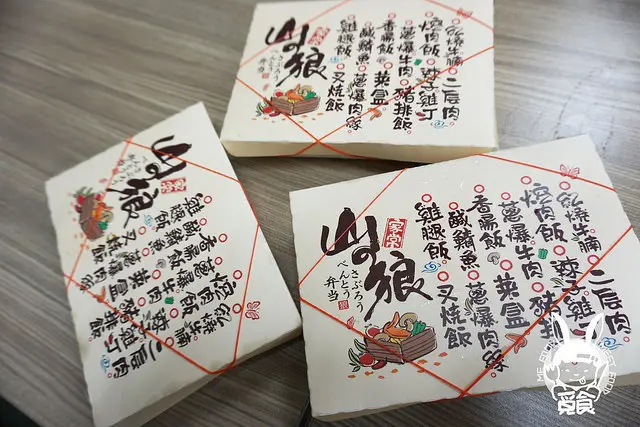 山の狼
家常
さぶろう
べんとう
弁当
紅燒牛腩
二層肉
焢肉飯
辣子雞丁
蔥爆牛肉
豬排飯
香腸飯
菜盒
鹹鯖魚
蔥爆肉絲
雞腿飯
叉燒飯
山の狼
家常
雞腿飯
叉燒飯
鹹鯖魚
蔥爆肉絲
香腸飯
菜盒
蔥爆牛肉
豬排飯
焢肉飯
辣子雞丁
紅燒牛腩
二層肉
山の狼
家常
さぶろう
べんとう
弁当
紅燒牛腩
二層肉
焢肉飯
辣子雞
蔥爆牛肉
豬排
香腸飯
菜盒
鹹鯖魚
蔥爆肉絲
雞腿飯
叉燒飯
覓食